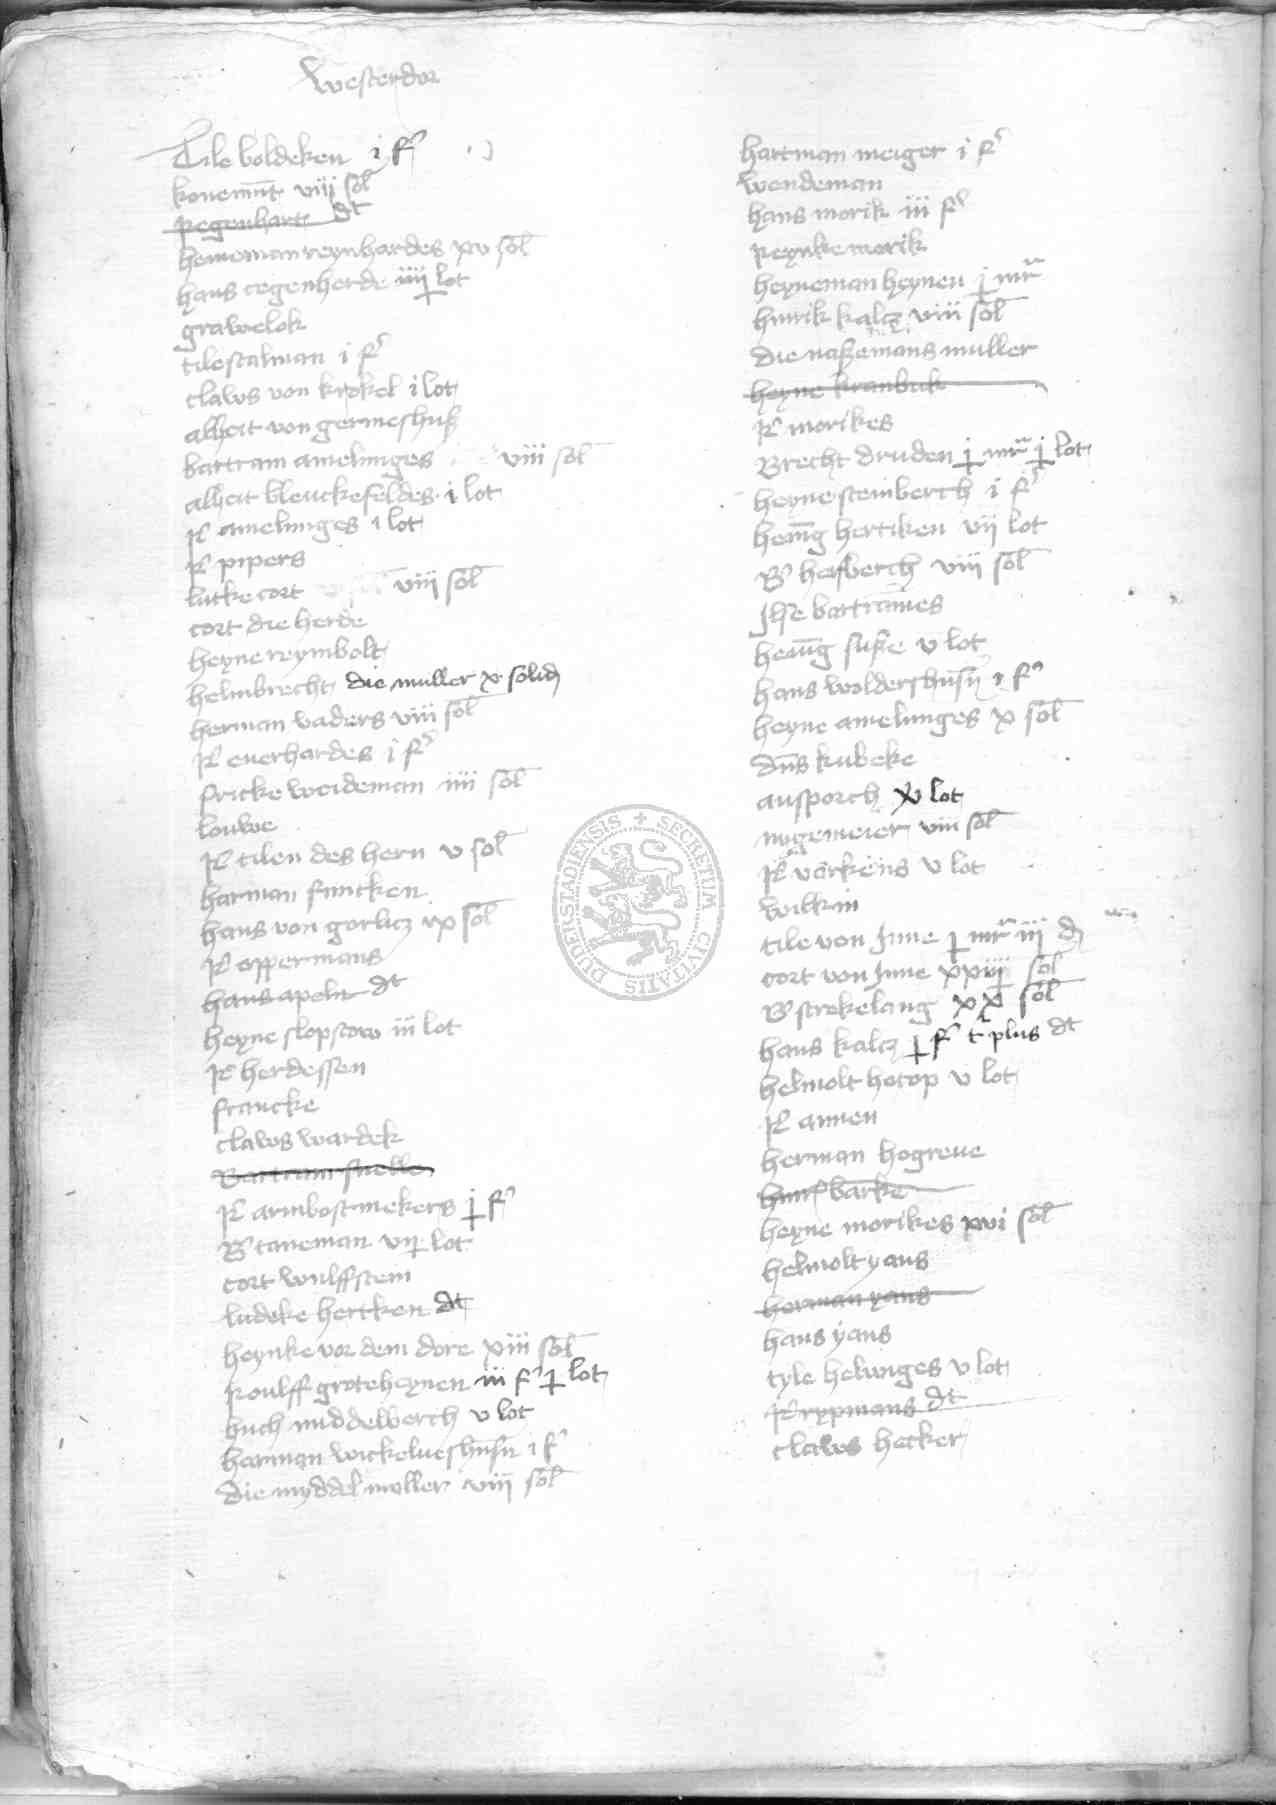 Westerdor
Tile boldeken i f
konemut viiij sol
Regenhart dt
heineman reynhardes xv sol
hans cegenherde iiij lot
grawelok
tile stalman i f
claws von krokel i lot
alheit von germeshusz
bartram amelunges viii sol
alheit bleuckefeldes i lot
R amelunges i lot
R pipers
lutke cort viii sol
cort die herde
heyne reymbolt
helmbrecht die muller x solid
herman vaders viii sol
R everhardes i f
fricke weideman iiii sol
louwe
R tilen des hern v sol
harman funcken
hans von gorlicz ix sol
R oppermans
hans apeln dt
heyne slopstow iii lot
R herdessen
francke
claws wardek
Bartram snellen
R armbostmekers i f
B taneman vij lot
cort wulffstein
ludeke hertken dt
heynke vor dem dore xiii sol
Roulff groteheynen iii f i lot
huch middelberch v lot
harman wickelveshusn i f
die myddel moller viii sol
hartman meiger i f
wendeman
hans morik iii f
Reynke morik
heyneman heynen i mr
hinrik kalcz viii sol
die nasemans muller
heyne kranbuk
R morikes
Brecht druden i mr i lot
heyne steinberch i f
henig hertiken vij lot
B hesberch viii sol
Ilse bartrames
henig suse v lot
hans woldershusn i f
heyne amelunges x sol
dns kubeke
ausporch xv lot
nigemeier viii sol
R vorkens v lot
wilkin
tile von June i mr iij d
cort von June xxiij sol
B strokelang xx sol
hans kalcz i f t plus dt
helmolt hotop v lot
R annen
herman hogreve
hinr barke
heyne morikes xvi sol
helmolt yans
herman yans
hans yans
tyle helwiges v lot
R rypmans dt
claws hecker
SECRETUM CIVITATIS DUDERSTADIENSIS